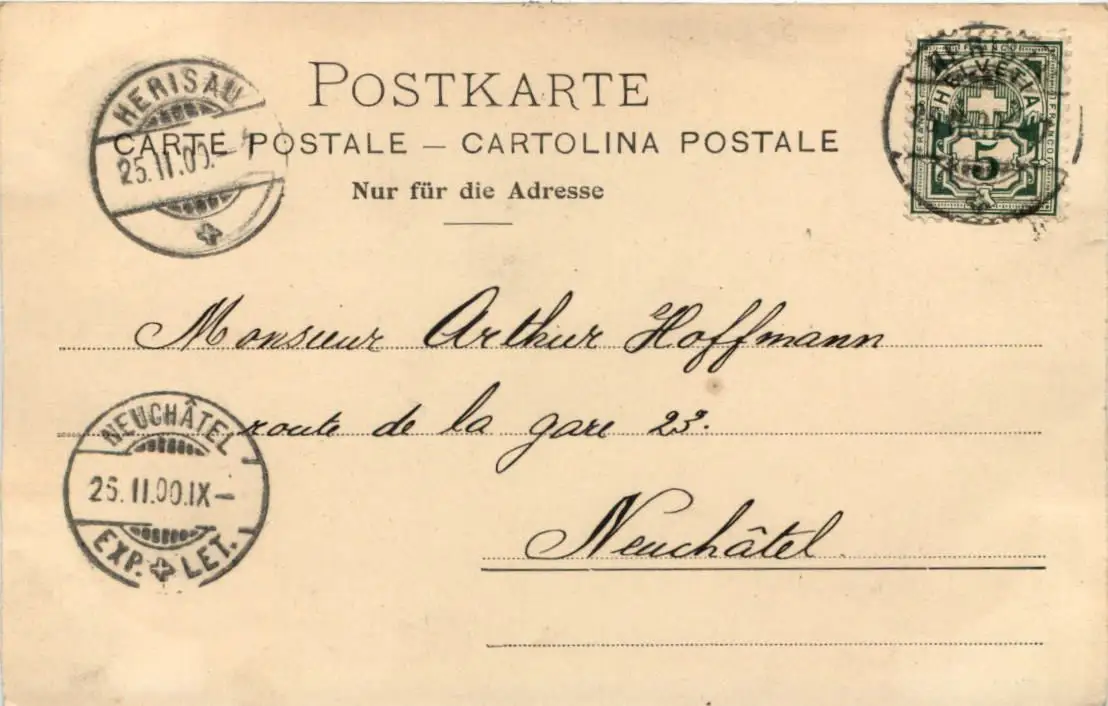 POSTKARTE
CARTE POSTALE — CARTOLINA POSTALE
Nur für die Adresse
HERISAU
25.II.00.–
HELVETIA
5
Monsieur Arthur Hoffmann
route de la gare 23.
Neuchâtel.
NEUCHÂTEL
26.II.00.IX–
EXP. LET.